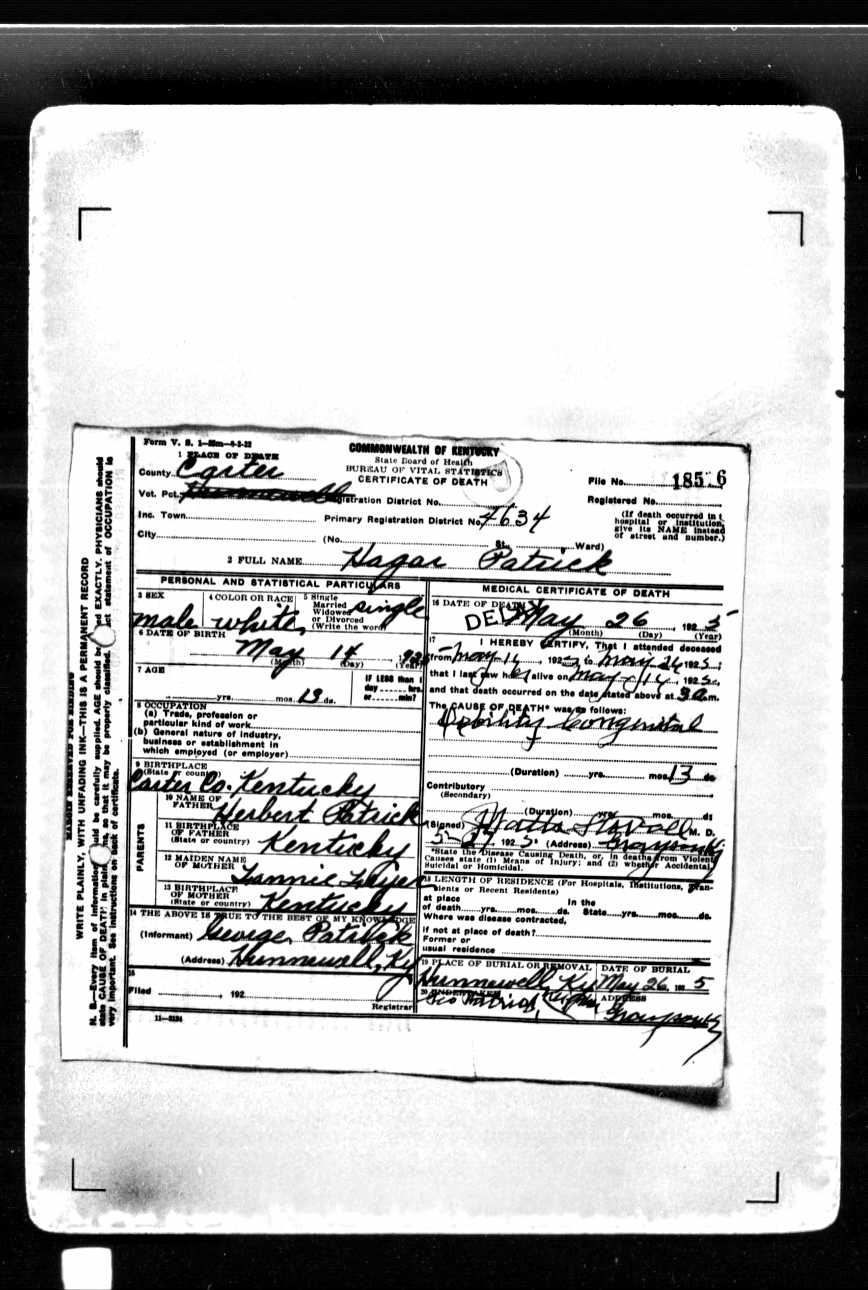 Form V. S. 1-
1 PLACE OF DEATH
COMMONWEALTH OF KENTUCKY
State Board of Health
BUREAU OF VITAL STATISTICS
CERTIFICATE OF DEATH
County Carter
File No. 185 6
Vot. Pct. Hunnewell Registration District No.
Registered No.
Inc. Town Primary Registration District No. 4634
(If death occurred in
hospital or institution,
give its NAME instead
of street and number.)
City (No. St. Ward)
2 FULL NAME Hagar Patrick
PERSONAL AND STATISTICAL PARTICULARS
3 SEX
male
4 COLOR OR RACE
white
5 Single
Married
Widowed
or Divorced
(Write the word)
single
6 DATE OF BIRTH
May 14, 1925
(Month) (Day) (Year)
7 AGE
yrs. mos. 13 ds.
IF LESS than 1
day hrs.
or min?
8 OCCUPATION
(a) Trade, profession or
particular kind of work
(b) General nature of industry,
business or establishment in
which employed (or employer)
9 BIRTHPLACE
(State or country)
Carter Co. Kentucky
PARENTS
10 NAME OF
FATHER Herbert Patrick
11 BIRTHPLACE
OF FATHER
(State or country) Kentucky
12 MAIDEN NAME
OF MOTHER Fannie
13 BIRTHPLACE
OF MOTHER
(State or country) Kentucky
14 THE ABOVE IS TRUE TO THE BEST OF MY KNOWLEDGE
(Informant) George Patrick
(Address) Hunnewell, Ky
15
Filed , 192
Registrar
11-3184
MEDICAL CERTIFICATE OF DEATH
16 DATE OF DEATH
May 26 192 5
(Month) (Day) (Year)
17 I HEREBY CERTIFY, That I attended deceased
from May 14, 1925 to May 26 1925;
that I last saw her alive on May 14, 1925,
and that death occurred on the date stated above at 3 a.m.
The CAUSE OF DEATH* was as follows:
Debility Congenital
(Duration) yrs. mos. 13 ds
Contributory
(Secondary)
(Duration) yrs. mos. ds
(Signed) Stovall M. D.
5-27, 1925 (Address) Grayson Ky
*State the Disease Causing Death, or, in deaths from Violent
Causes state (1) Means of Injury; and (2) whether Accidental,
Suicidal or Homicidal.
18 LENGTH OF RESIDENCE (For Hospitals, Institutions, Tran-
sients or Recent Residents)
At place In the
of death yrs. mos. ds. State yrs. mos. ds.
Where was disease contracted,
if not at place of death?
Former or
usual residence
19 PLACE OF BURIAL OR REMOVAL
Hunnewell Ky
DATE OF BURIAL
May 26, 192 5
20 UNDERTAKER
Geo Patrick
ADDRESS
Grayson Ky
MARGIN RESERVED FOR BINDING
WRITE PLAINLY, WITH UNFADING INK—THIS IS A PERMANENT RECORD